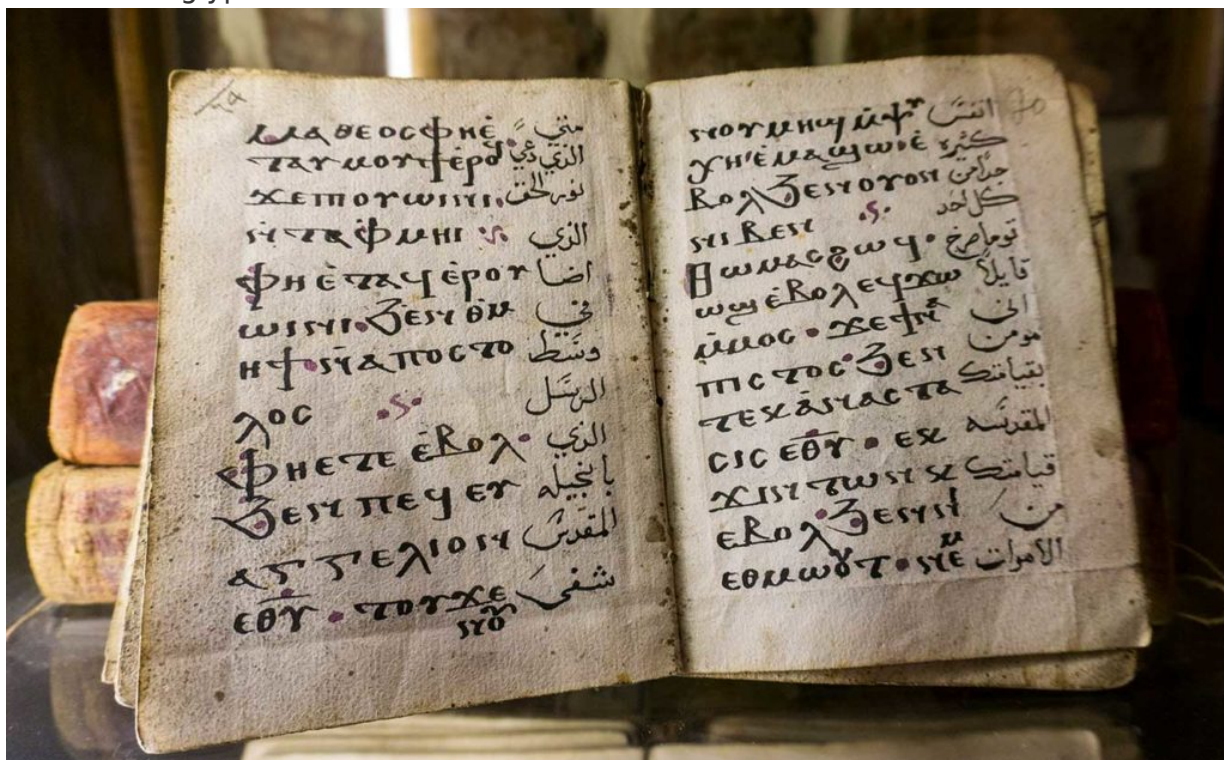 ⲙⲁⲑⲉⲟⲥⲫⲏⲉ̀ متي
ⲧⲁⲩⲙⲟⲩϯⲉ̀ⲣⲟϥ الذي دعي
ϫⲉⲡⲓⲟⲩⲱⲓⲛⲓ نور الحق
ⲛ̀ⲧⲁⲫⲙⲏⲓ الذي
ⲫⲏⲉ̀ⲧⲁϥⲉ̀ⲣⲟⲩ اضا
ⲱⲓⲛⲓ·ϧⲉⲛ ⲑⲙ في
ⲏϯ·ⲛ̀ⲁⲡⲟⲥⲧⲟ وسَط
ⲗⲟⲥ الرسَل
ⲫⲏⲉⲧⲉ ⲉ̀ⲃⲟⲗ· الذي
ϧⲉⲛ ⲡⲉϥ ⲉⲩ بانجيله
ⲁⲅⲅⲉⲗⲓⲟⲛ المقدسَ
ⲉⲑ̅ⲩ̅ · ⲧⲟⲩϫⲉ شفىَ
ⲛⲟⲩⲙⲏϣ ⲙ̀ⲯⲩ انفسَ
ⲭⲏ ⲉ̀ⲙⲁϣⲱ ⲉ̀ كثيره
ⲃⲟⲗ ϧⲉⲛ ⲟⲩⲟⲛ جداً من
ⲛⲓⲃⲉⲛ كل احد
ⲑⲱⲙⲁⲥ ϩⲱϥ· توما صرخ
ⲱϣ ⲉ̀ⲃⲟⲗ ⲉϥϫⲱ قايلاً
ⲙ̀ⲙⲟⲥ·ϫⲉ انى
ⲡⲓⲥⲧⲟⲥ·ϧⲉⲛ مومن
ⲧⲉⲕ ⲁ̀ⲛⲁⲥⲧⲁ بقيامتك
ⲥⲓⲥ ⲉⲑ̅ⲩ̅ · ⲉⲕ المقدسَه
ϫⲓⲛⲧⲱⲛⲕ قيامتك
ⲉⲃⲟⲗ ϧⲉⲛ ⲛⲓ من
ⲉⲑⲙⲱⲟⲩⲧ·ⲛⲉⲙ الاموات